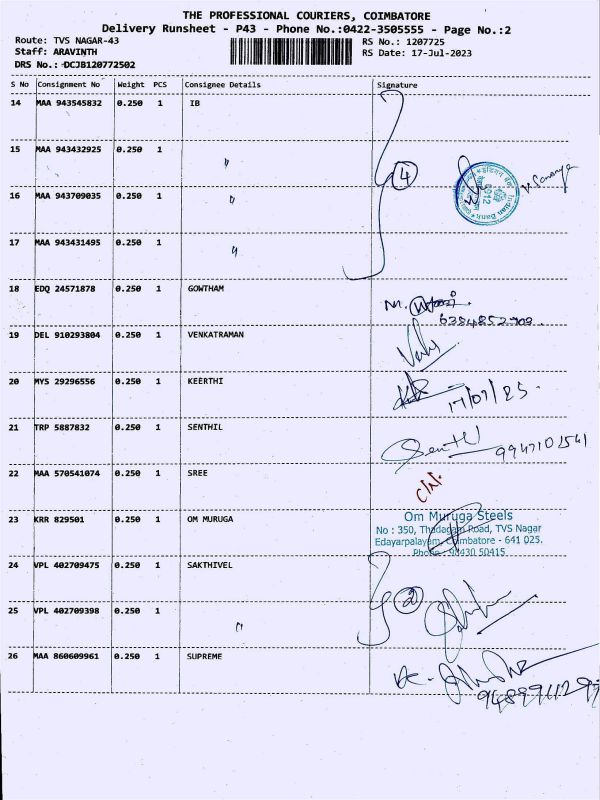 THE PROFESSIONAL COURIERS, COIMBATORE
Delivery Runsheet - P43 - Phone No.:0422-3505555 - Page No.:2
Route: TVS NAGAR-43 RS No.: 1207725
Staff: ARAVINTH RS Date: 17-Jul-2023
DRS No.: DCJB120772502
S No Consignment No Weight PCS Consignee Details Signature
14 MAA 943545832 0.250 1 IB
15 MAA 943432925 0.250 1 "
4
16 MAA 943709035 0.250 1 "
Indian Bank
17 MAA 943431495 0.250 1 "
18 EDQ 24571878 0.250 1 GOWTHAM
6384852908
19 DEL 910293804 0.250 1 VENKATRAMAN
20 MYS 29296556 0.250 1 KEERTHI
17/07/23
21 TRP 5887832 0.250 1 SENTHIL
22 MAA 570541074 0.250 1 SREE
23 KRR 829501 0.250 1 OM MURUGA
Om Muruga Steels
No : 350, Thadagam Road, TVS Nagar
Edayarpalayam, Coimbatore - 641 025.
Phone : 90430 50415
24 VPL 402709475 0.250 1 SAKTHIVEL
2
25 VPL 402709398 0.250 1 "
26 MAA 860609961 0.250 1 SUPREME